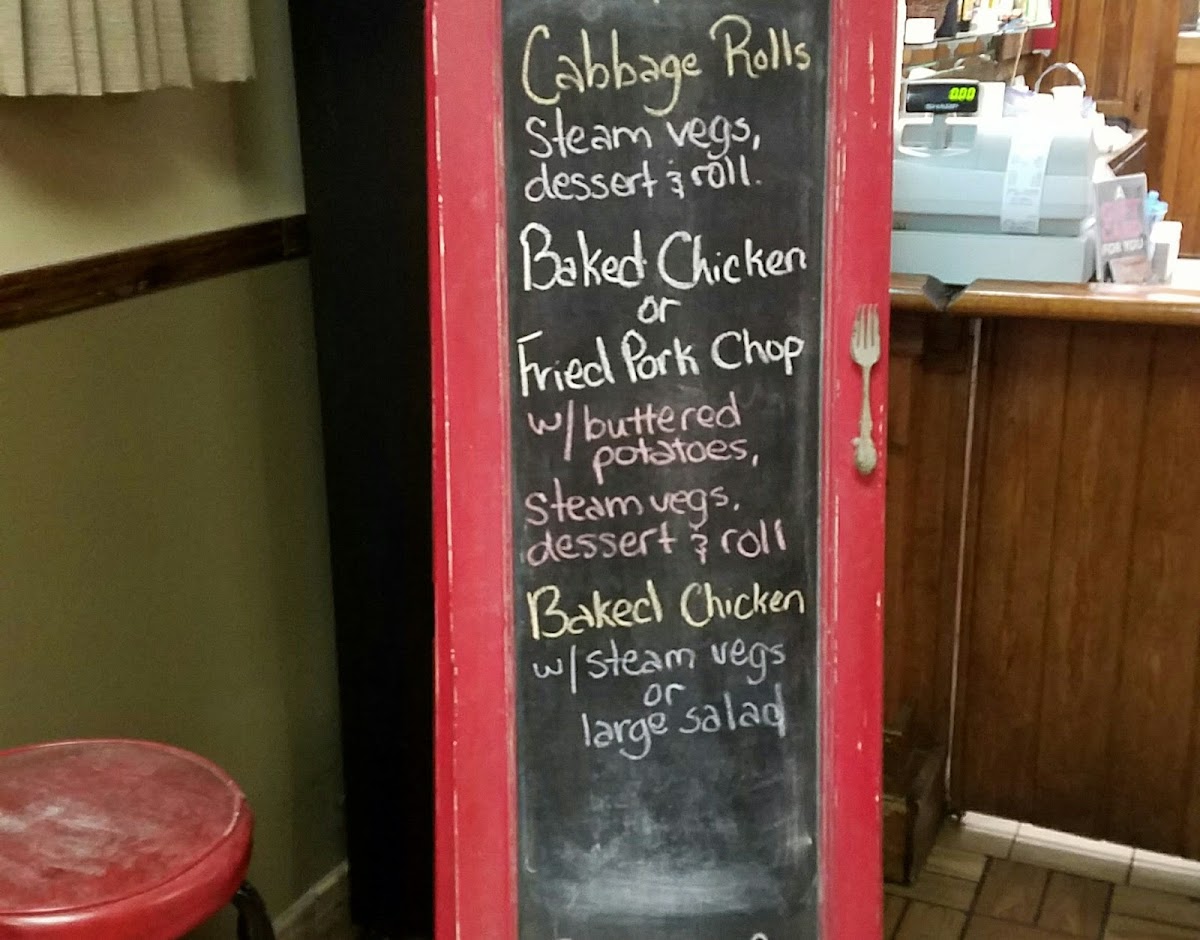 Cabbage Rolls
steam vegs,
dessert & roll.
Baked Chicken
or
Fried Pork Chop
w/ buttered
potatoes,
steam vegs.
dessert & roll
Baked Chicken
w/ steam vegs
or
large salad
0.00
SHARP
FOR YOU